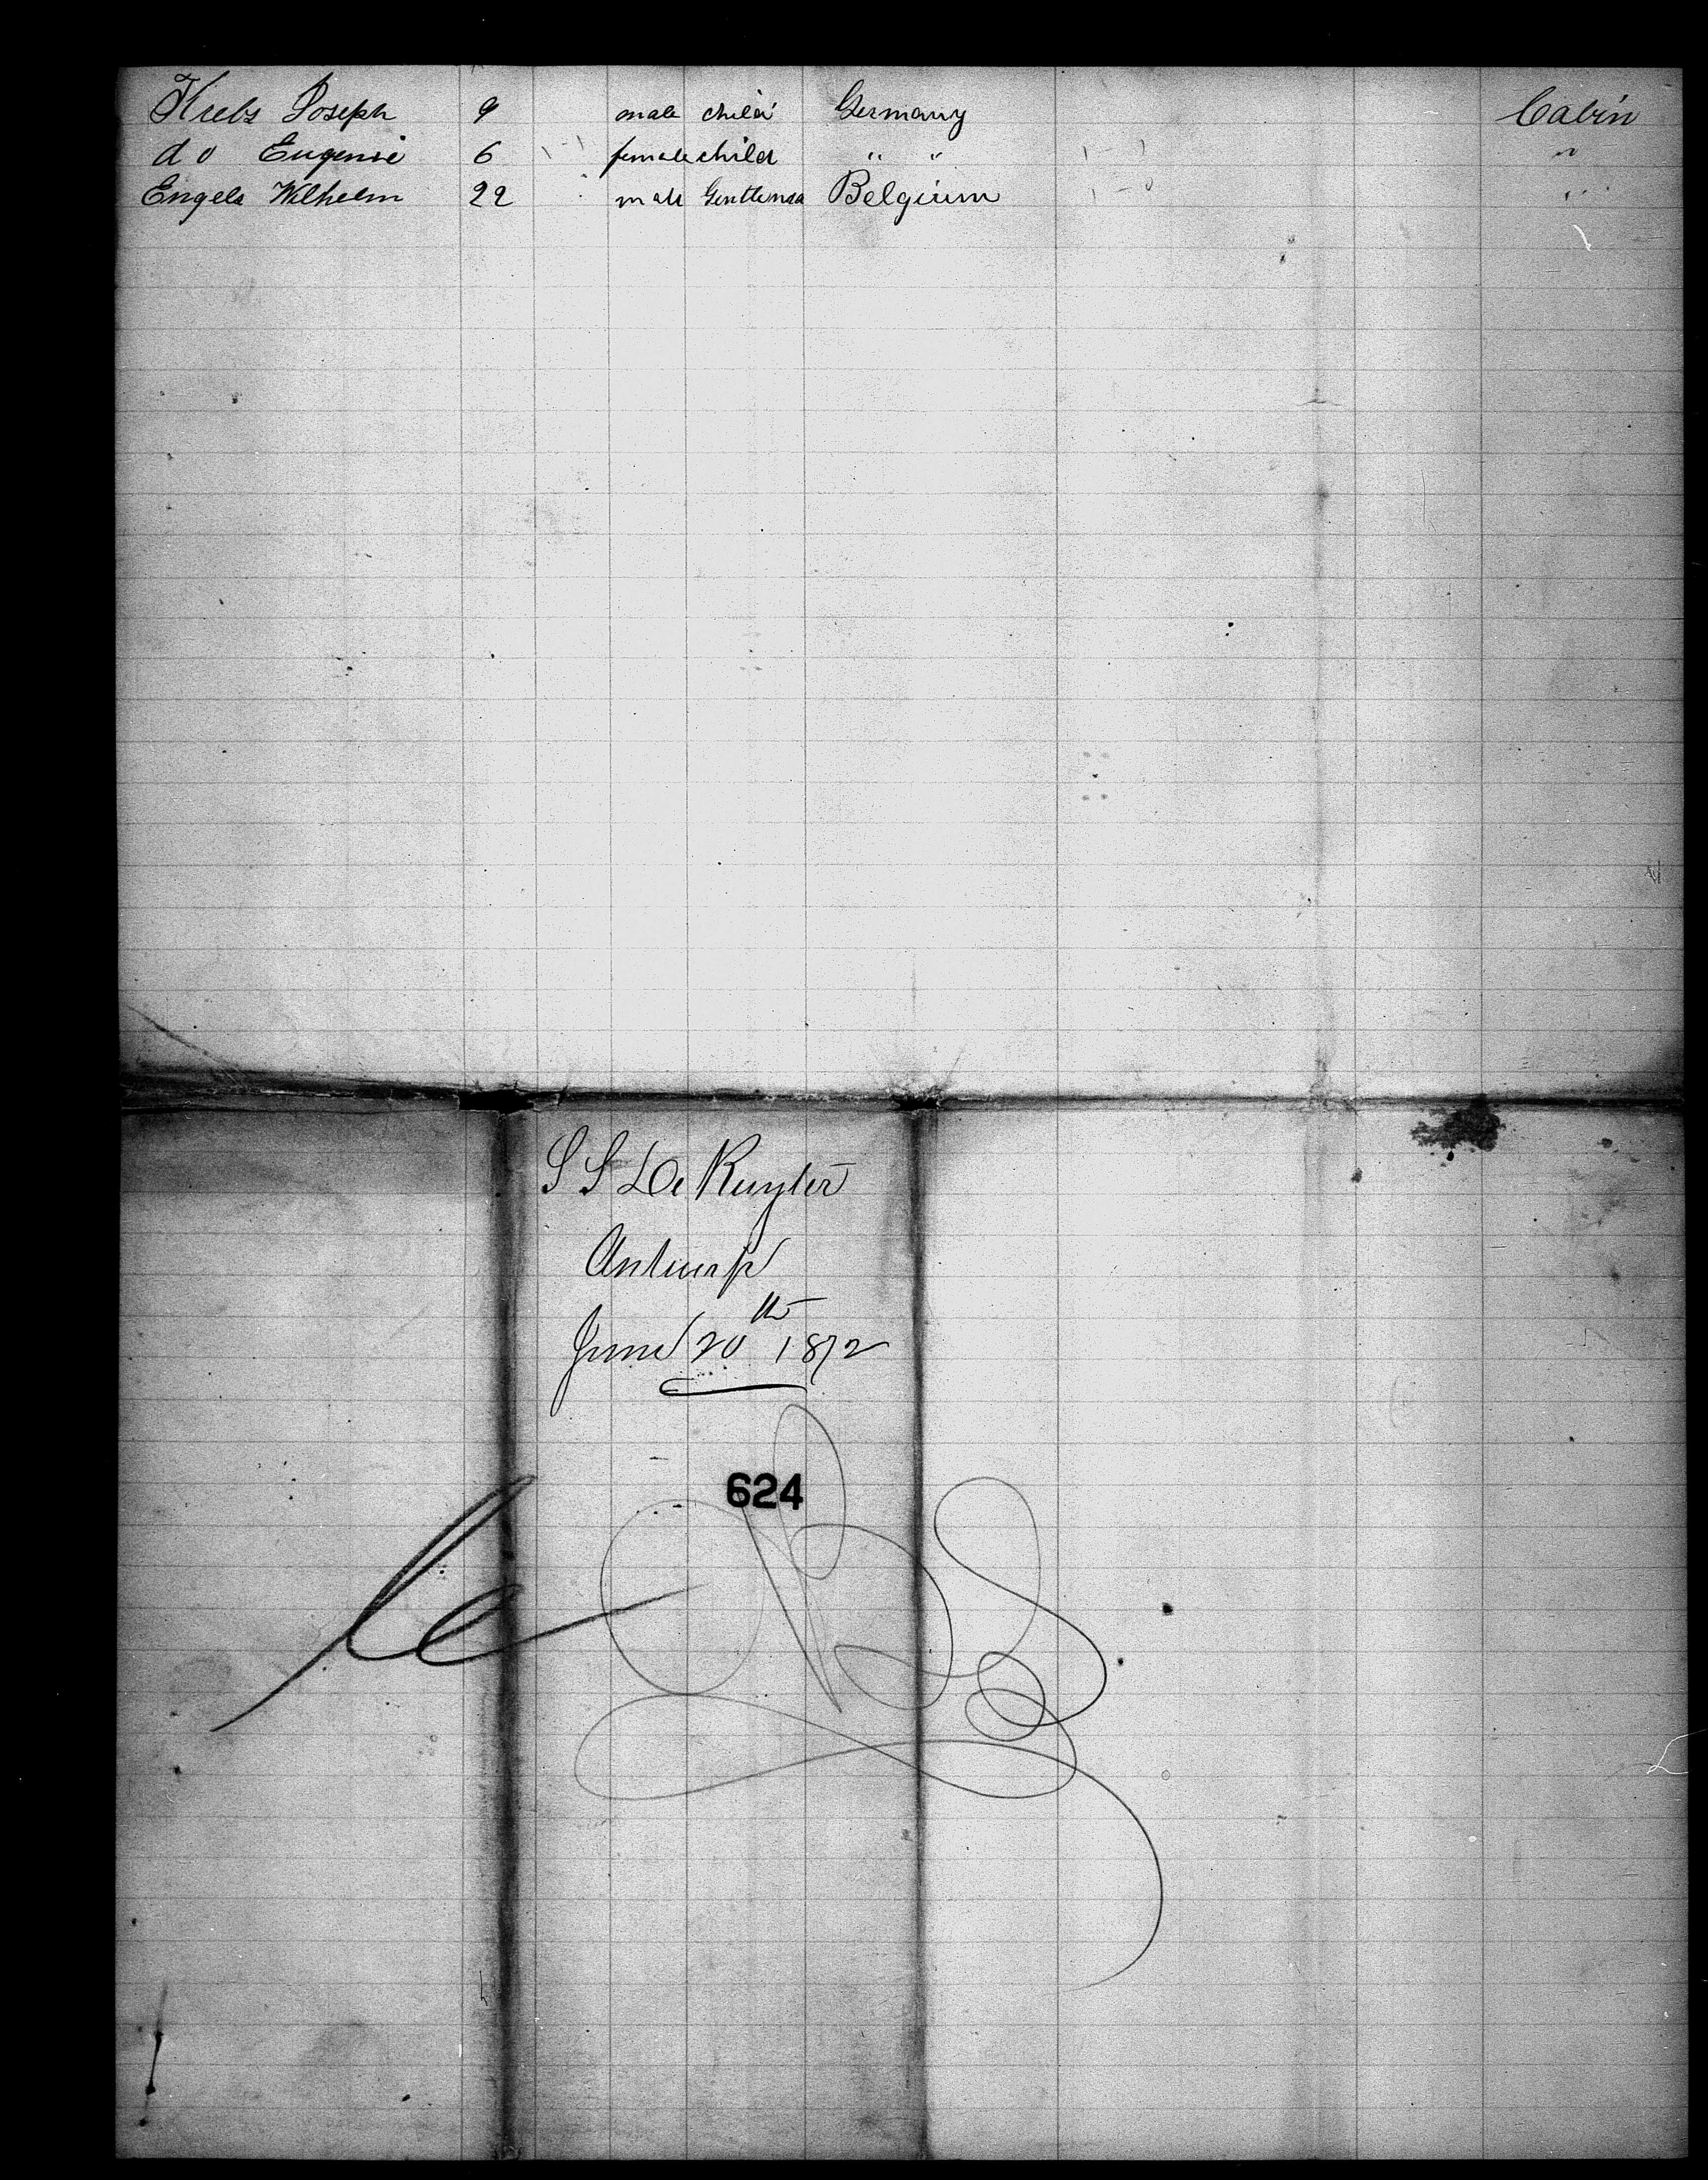 Krebs Joseph 9 male child Germany Cabin
do Eugenie 6 female child " " "
Engels Wilhelm 22 male Gentleman Belgium "
S S De Ruyter
Antwerp
June 20th 1872
624